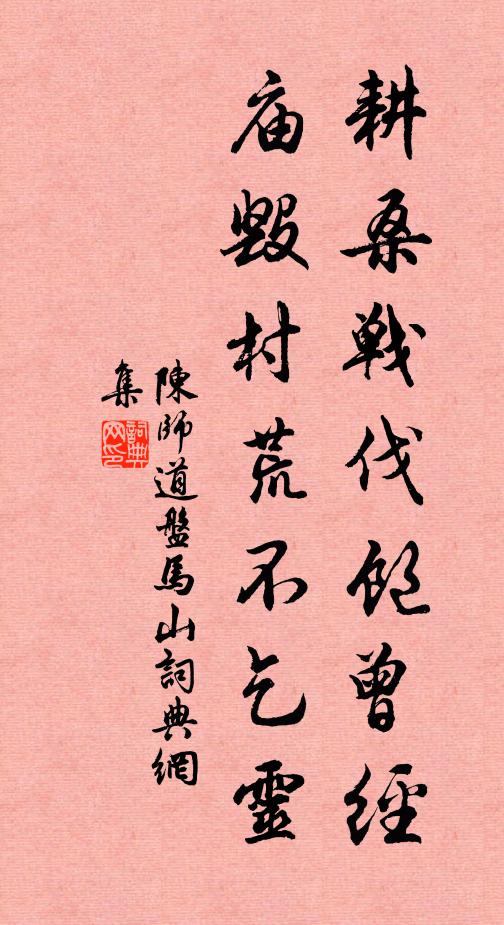 耕桑戰伐飽曾經
庙毀村荒不乞靈
陳師道盤馬山詞典網
集
詞典
网印